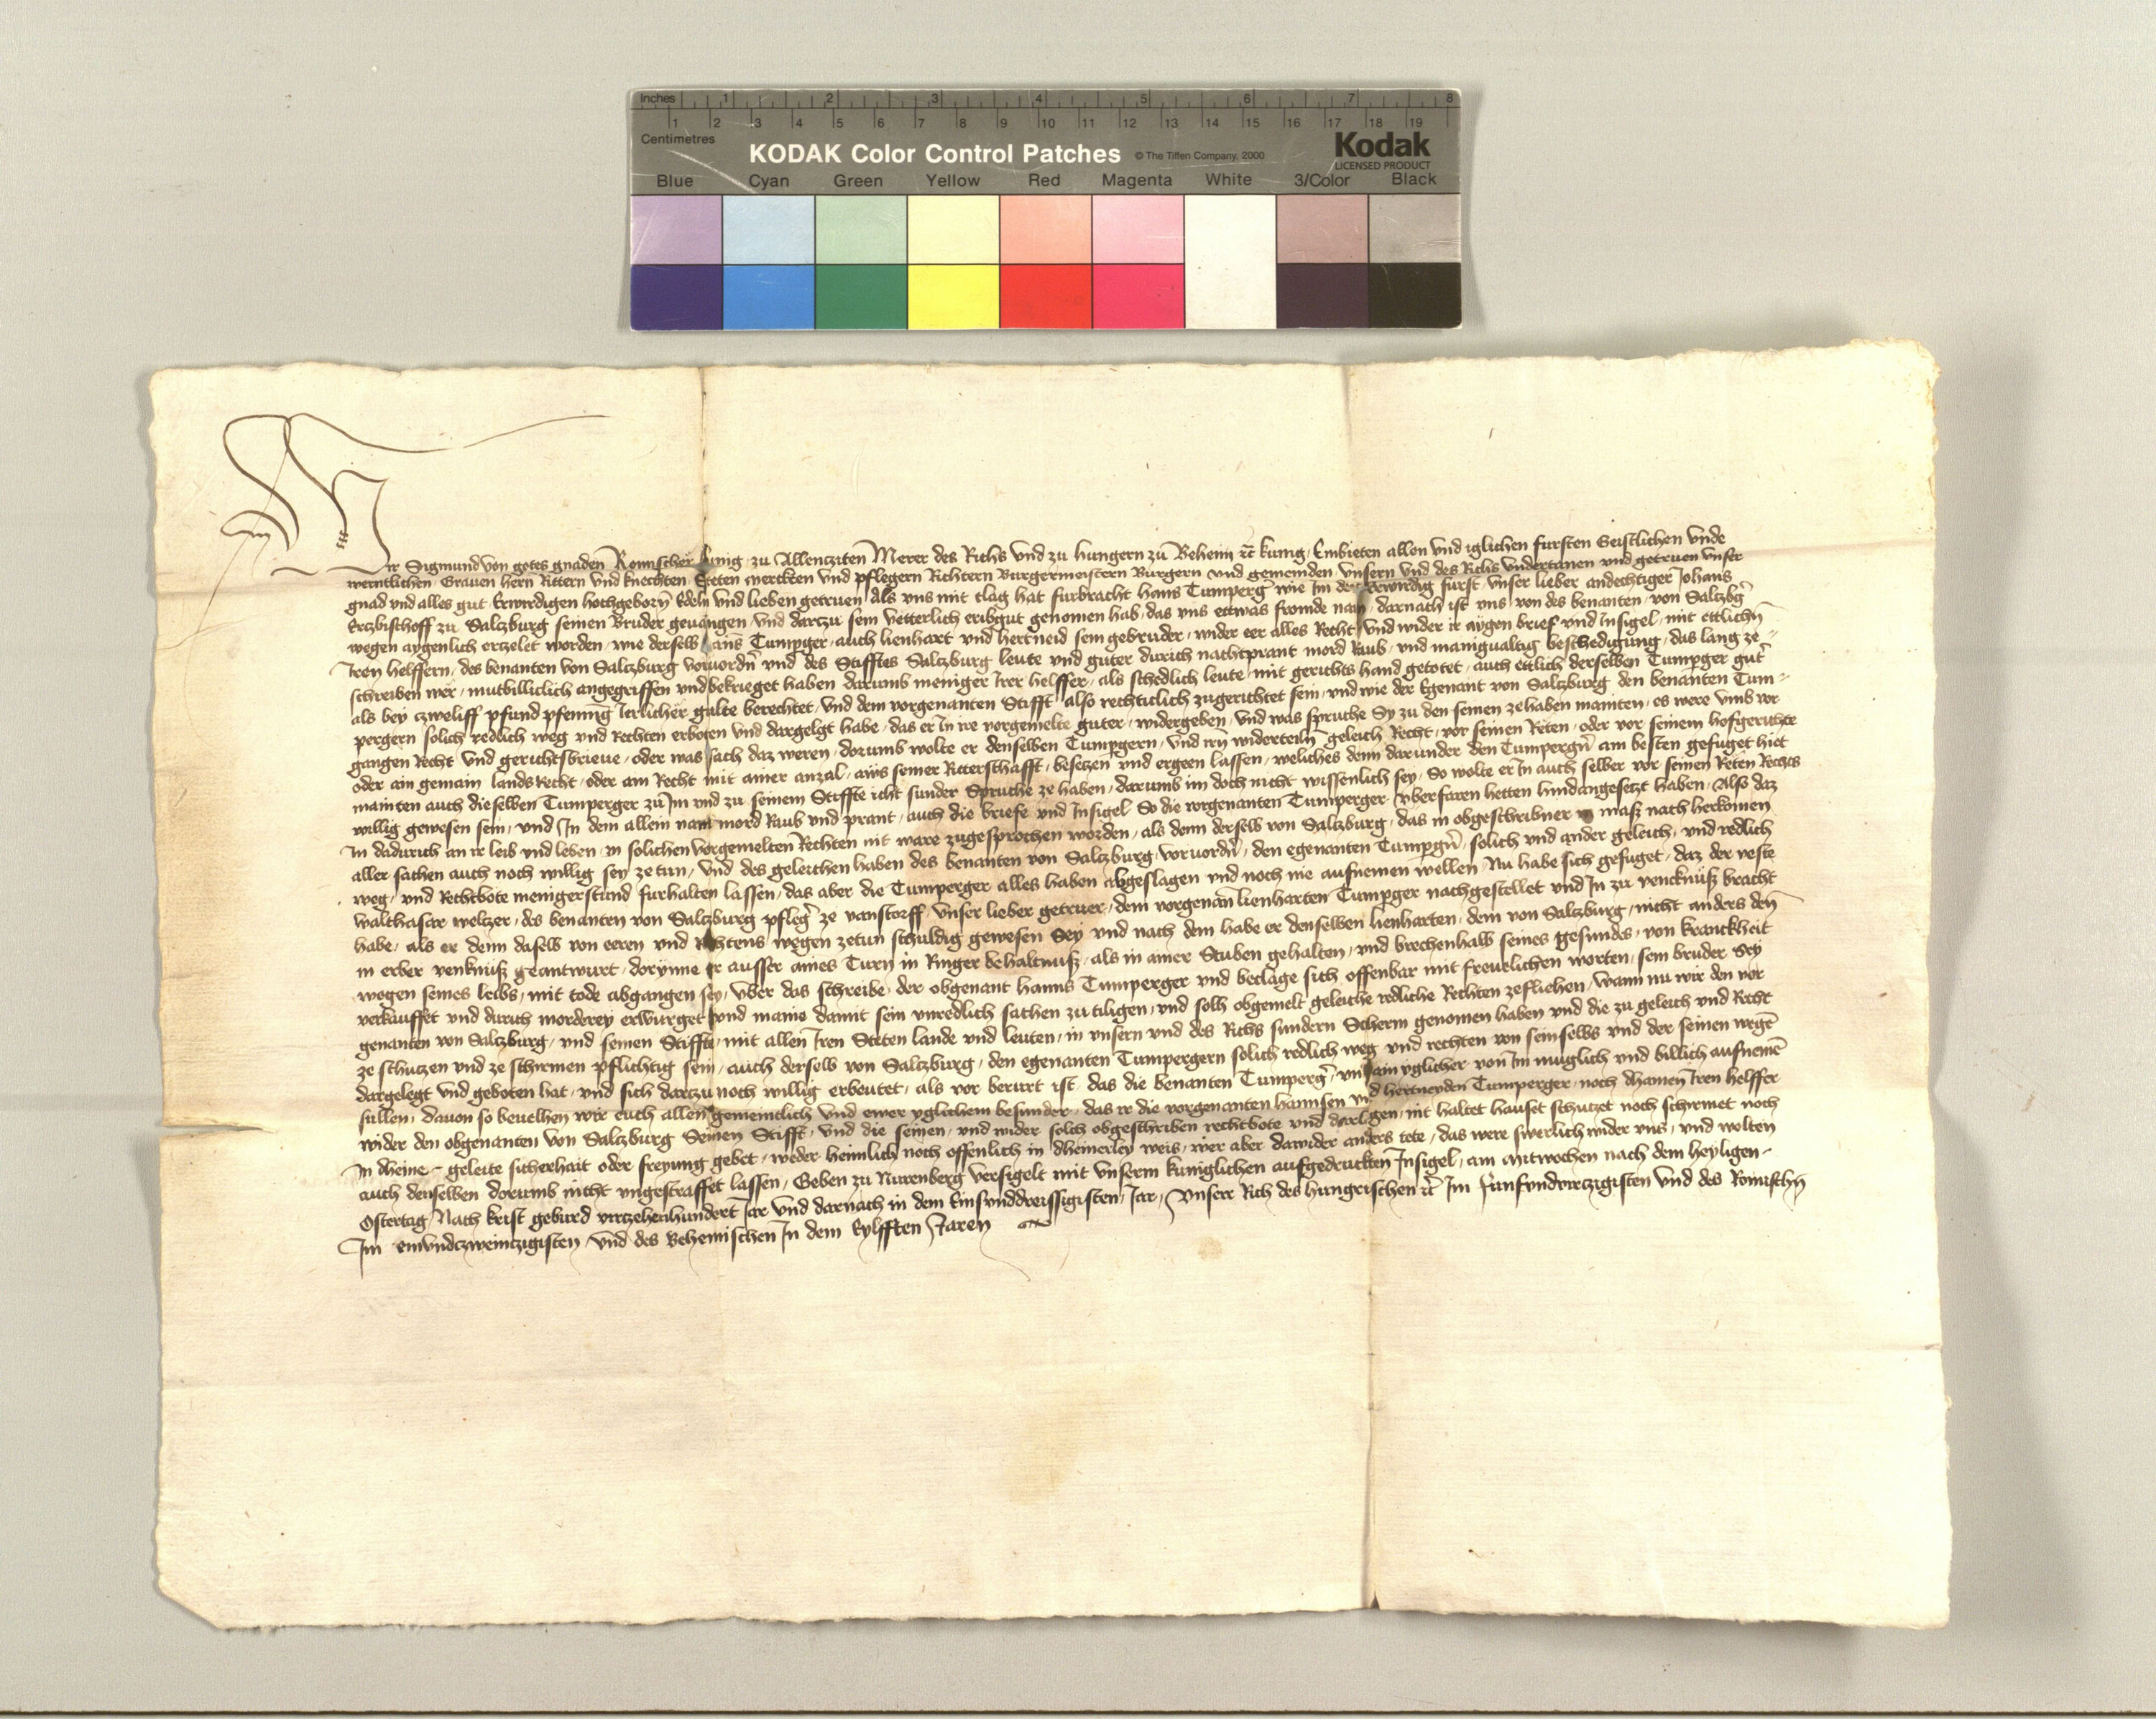 Inches 1 2 3 4 5 6 7 8
1 2 3 4 5 6 7 8 9 10 11 12 13 14 15 16 17 18 19
Centimetres
KODAK Color Control Patches © The Tiffen Company, 2000 Kodak
LICENSED PRODUCT
Blue Cyan Green Yellow Red Magenta White 3/Color Black
Wir Sigmund von gotes gnaden Romischer kunig zu Allenczten Merer des Richs und zu hungern zu Beheim etc kunig Embieten allen und iglichen fursten Geistlichen unde
werntlichen Grauen hern Rittern und knechten Steten merckten und pflegern Richtern Burgermeistern Burgern und gemeinden unsern und des Richs undertanen und getruen unser
gnad und alles gut Erwirdigen hochgeborn Edeln und lieben getruen Als uns mit clag hat furbracht hans Tumperger wie Im der Erwirdig furst unser lieber andechtiger Johans
Ertzbischoff zu Salczburg seinen Bruder geuangen und darczu sein vetterlich eribgut genomen hab das uns ettwas fromde nam darnach ist uns von des benanten von Salczbg
wegen aygenlich erczelet worden wie derselb hans Tumpger auch lienhart und hertneid sein gebruder wider eer alles Recht und wider ir aygen brief und Insigel mit ettlichn
Iren helffern des benanten von Salczburg voruordn und des Stifftes Salczburg leute und guter durich nachtprant mord Raub und manigualtig beschedigung das lang ze
schreiben wer mutbilliclich angegriffen und bekrieget haben darumb meniger Irer helffer als schedlich leute mit gerichts hand getotet auch ettlich derselben Tumperger gut
als bey czweliff pfund pfening Ierlicher gulte berechtet und dem vorgenanten Stifft also rechticlich zugerichtet sein und wie der Egenant von Salczburg den benanten Tum
pergern solich redlich weg und Rechten erboten und dargelegt habe das er In ire vorgemelte guter widergeben und was spruche Sy zu den seinen zehaben mainten es were umb vor
gangen Recht und gerichtsbrieue oder was sach daz weren dorumb wolte er denselben Tumpgern und irn widerteiln geleich Recht vor seinen Reten oder vor seinem hofgerichte
oder ain gemain lands Recht oder ain Recht mit ainer anzal auss seiner Ritterschafft besetzen und ergeen lassen weliches denn darunder den Tumpergn am besten gefuget hiet
mainten auch dieselben Tumperger zu Im und zu seinem Stiffte icht sunder Spruche ze haben darumb im doch nicht wissenlich sey So wolte er In auch selber vor seinen Reten Rechts
willig gewesen sein und In dem allem nam mord Raub und prant auch die briefe und Insigel So die vorgenanten Tumperger uberfaren hetten hindangesetzt haben Also daz
In dadurich an ir leib und leben in solichen vorgemelten Rechten nit ware zugesprochen worden als denn derselb von Salczburg das in obgeschribner mass nach herkomen
aller sachen auch noch willig sey ze tun und des geleichen haben des benanten von Salczburg voruordn den egenanten Tumpgn solich und ander geleich und redlich
weg und Rechtbote menigerstund furhalten lassen das aber die Tumperger alles haben abgeslagen und noch nie aufnemen wellen Nu habe sich gefuget daz der veste
walthasar welzer des benanten von Salczburg pfleger ze vanstorff unser lieber getruer dem vorgenan lienharten Tumpger nachgestellet und In zu vencknuß bracht
habe als er denn daselb von eeren und Rechtens wegen zetun schuldig gewesen Sey und nach dem habe er denselben lienharten dem von Salczburg nicht anders den
in erber venknuß geantwurt dorynne er ausser aines Turn in Ringer behaltnuß als in ainer Stuben gehalten und brechenhalb seines gesundes von kranckheit
wegen seines leibs mit tode abgangen sey Uber das schreibe der obgenant hanns Tumperger und beclage sich offenbar mit freuelichen worten sein bruder Sey
verkauffet und durich morderey erwurget und maine damit sein unredlich sachen zu tiligen und solh obgemelt geleiche redliche Rechten zefliehen wann nu wir den vor
genanten von Salczburg und seinen Stiffte mit allen Iren Steten lande und leuten in unsern und des Richs sundern Scherm genomen haben und die zu geleich und Recht
ze schutzen und ze schirmen pflichtig sein auch derselb von Salczburg den egenanten Tumpergern solich redlich weg und rechten von seinselbs und der seinen wegen
dargelegt und geboten hat und sich darczu noch willig erbeutet als vor berurt ist das die benanten Tumperger und ain yglicher von Im muglich und billich aufnemen
sullen dauon so beuelhen wir euch allen gemeinclich und ewer yglichem besunder das ir die vorgenanten hannsen und hertneyden Tumperger noch dhainen Iren helffer
wider den obgenanten von Salczburg Seinen Stifft und die seinen und wider solch obgeschriben rechtbote und darlegen nit haltet hauset schutzet noch schirmet noch
In dheine geleite sicherhait oder freyung gebet weder heimlich noch offenlich in dheinerley weis wer aber dawider anders tete das were swerlich wider uns und wolten
auch denselben dorumb nicht ungestraffet lassen Geben zu Nurenberg versigelt mit unserm kuniglichen aufgedruckten Insigel am mitwochen nach dem heyligen
Ostertag Nach krist geburd vierczehenhundert Jar und darnach in dem Einsunddreissigisten Jar Unserr Rich des hungrischen etc Im funfundvierczigisten und des Romischn
Im einundczweinczigisten und des Behemischen In dem Eylfften Jaren